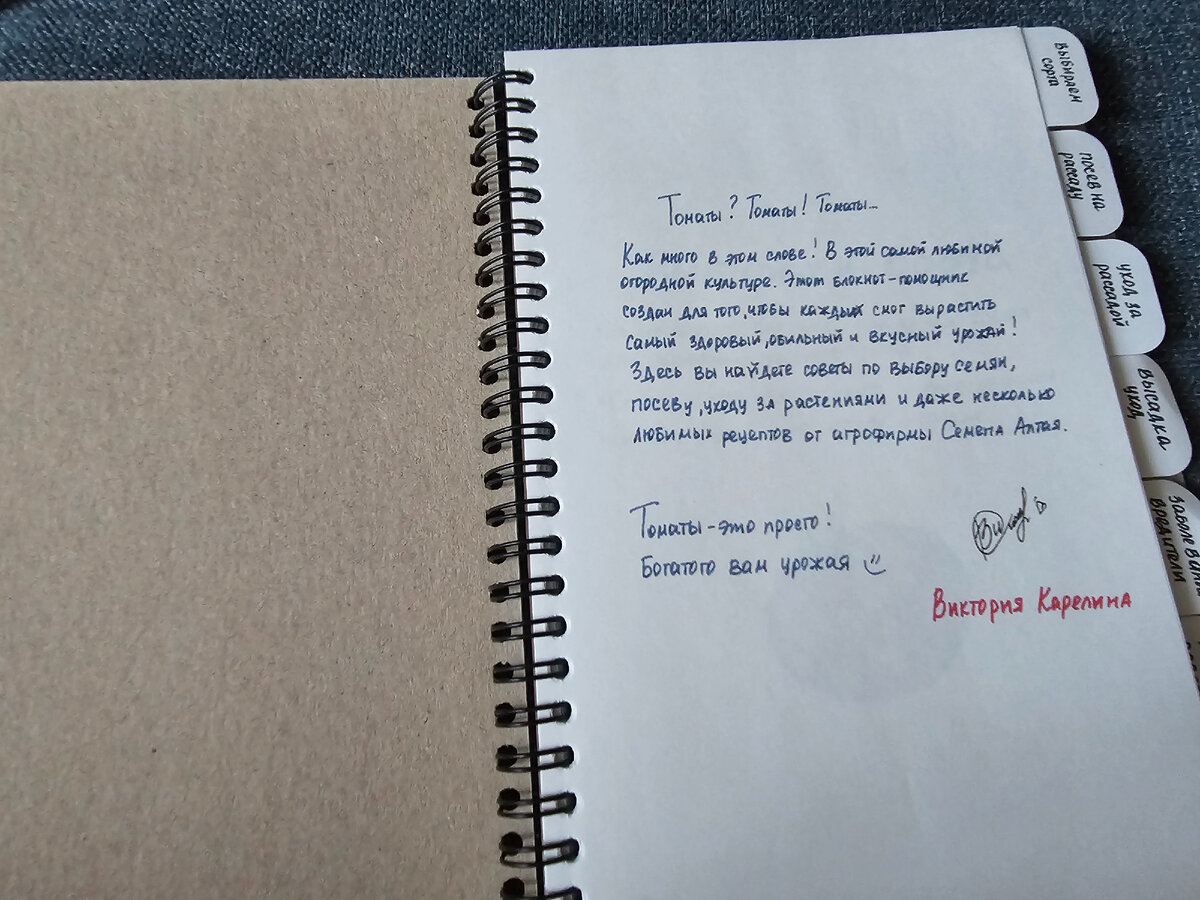 Томаты? Томаты! Томаты...
Как много в этом слове! В этой самой любимой
огородной культуре. Этот блокнот-помощник
создан для того, чтобы каждый смог вырастить
самый здоровый, обильный и вкусный урожай!
Здесь вы найдете советы по выбору семян,
посеву, уходу за растениями и даже несколько
любимых рецептов от агрофирмы Семена Алтая.
Томаты - это просто!
Богатого вам урожая
Виктория Карелина
выбираем
сорта
посев на
рассаду
уход за
рассадой
высадка
уход
вредители